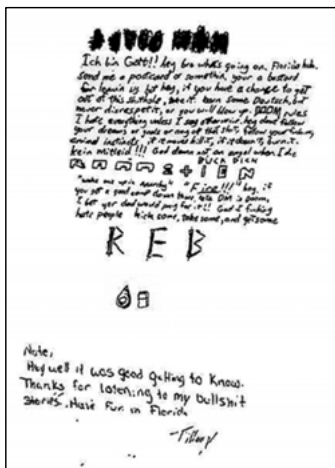 Ich bin Gott!! hey bro what's going on. Florida huh.
send me a postcard or somethin. your a bastard
for leavin us but hey, if you have a chance to get
out of this shithole, use it. learn some Deutsch, but
never disrespect it, or you will blow up. DOOM rules
I hate everything unless I say otherwise. hey dont follow
your dreams or goals or any of that shit, follow your fucking
animal instincts, if it moves kill it, if it doesn't, burn it.
kein mitleid!!! God damn not an angel when I die
DICK
"wake me up in anarchy" "Fire!!!" hey, if
you get a good down there, take Dan is Doom,
I bet yer dad would pay for it!! God I fucking
hate people kick some, take some, and get some
R E B
Note,
Hey well it was good getting to know.
Thanks for listening to my bullshit
stories. Have Fun in Florida